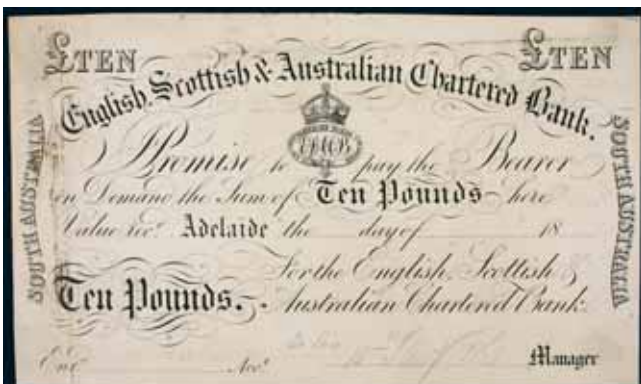 £TEN £TEN
English, Scottish & Australian Chartered Bank.
SOUTH AUSTRALIA
SOUTH AUSTRALIA
I Promise to pay the Bearer
on Demand the Sum of Ten Pounds here
Value recd. Adelaide the day of 18
For the English, Scottish &
Ten Pounds. Australian Chartered Bank.
Entd. Acct. Manager